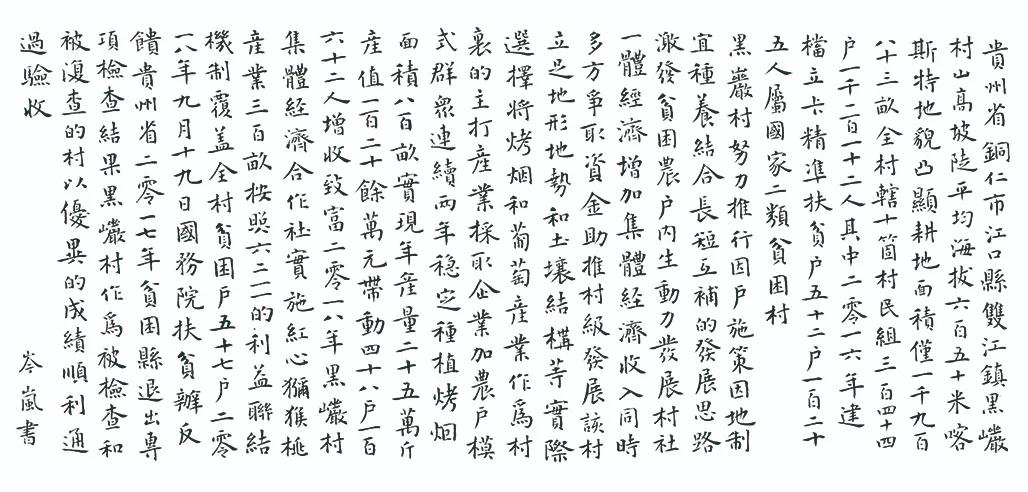 貴州省銅仁市江口縣雙江鎮黑巖
村山高坡陡平均海拔六百五十米喀
斯特地貌凸顯耕地面積僅一千九百
八十三畝全村轄十箇村民組三百四十四
户一千二百一十二人其中二零一六年建
檔立卡精準扶貧户五十二户一百二十
五人屬國家二類貧困村
黑巖村努力推行因户施策因地制
宜種養結合長短互補的發展思路
激發貧困農户内生動力發展村社
一體經濟增加集體經濟收入同時
多方爭取資金助推村級發展該村
立足地形地勢和土壤結構等實際
選擇將烤烟和葡萄産業作爲村
裏的主打産業採取企業加農户模
式群衆連續兩年穩定種植烤烟
面積八百畝實現年産量二十五萬斤
産值一百二十餘萬元帶動四十八户一百
六十二人增收致富二零一八年黑巖村
集體經濟合作社實施紅心獼猴桃
産業三百畝按照六二二的利益聯結
機制覆蓋全村貧困户五十七户二零
一八年九月十九日國務院扶貧辦反
饋貴州省二零一七年貧困縣退出專
項檢查結果黑巖村作爲被檢查和
被復查的村以優異的成績順利通
過驗收
岑嵐書